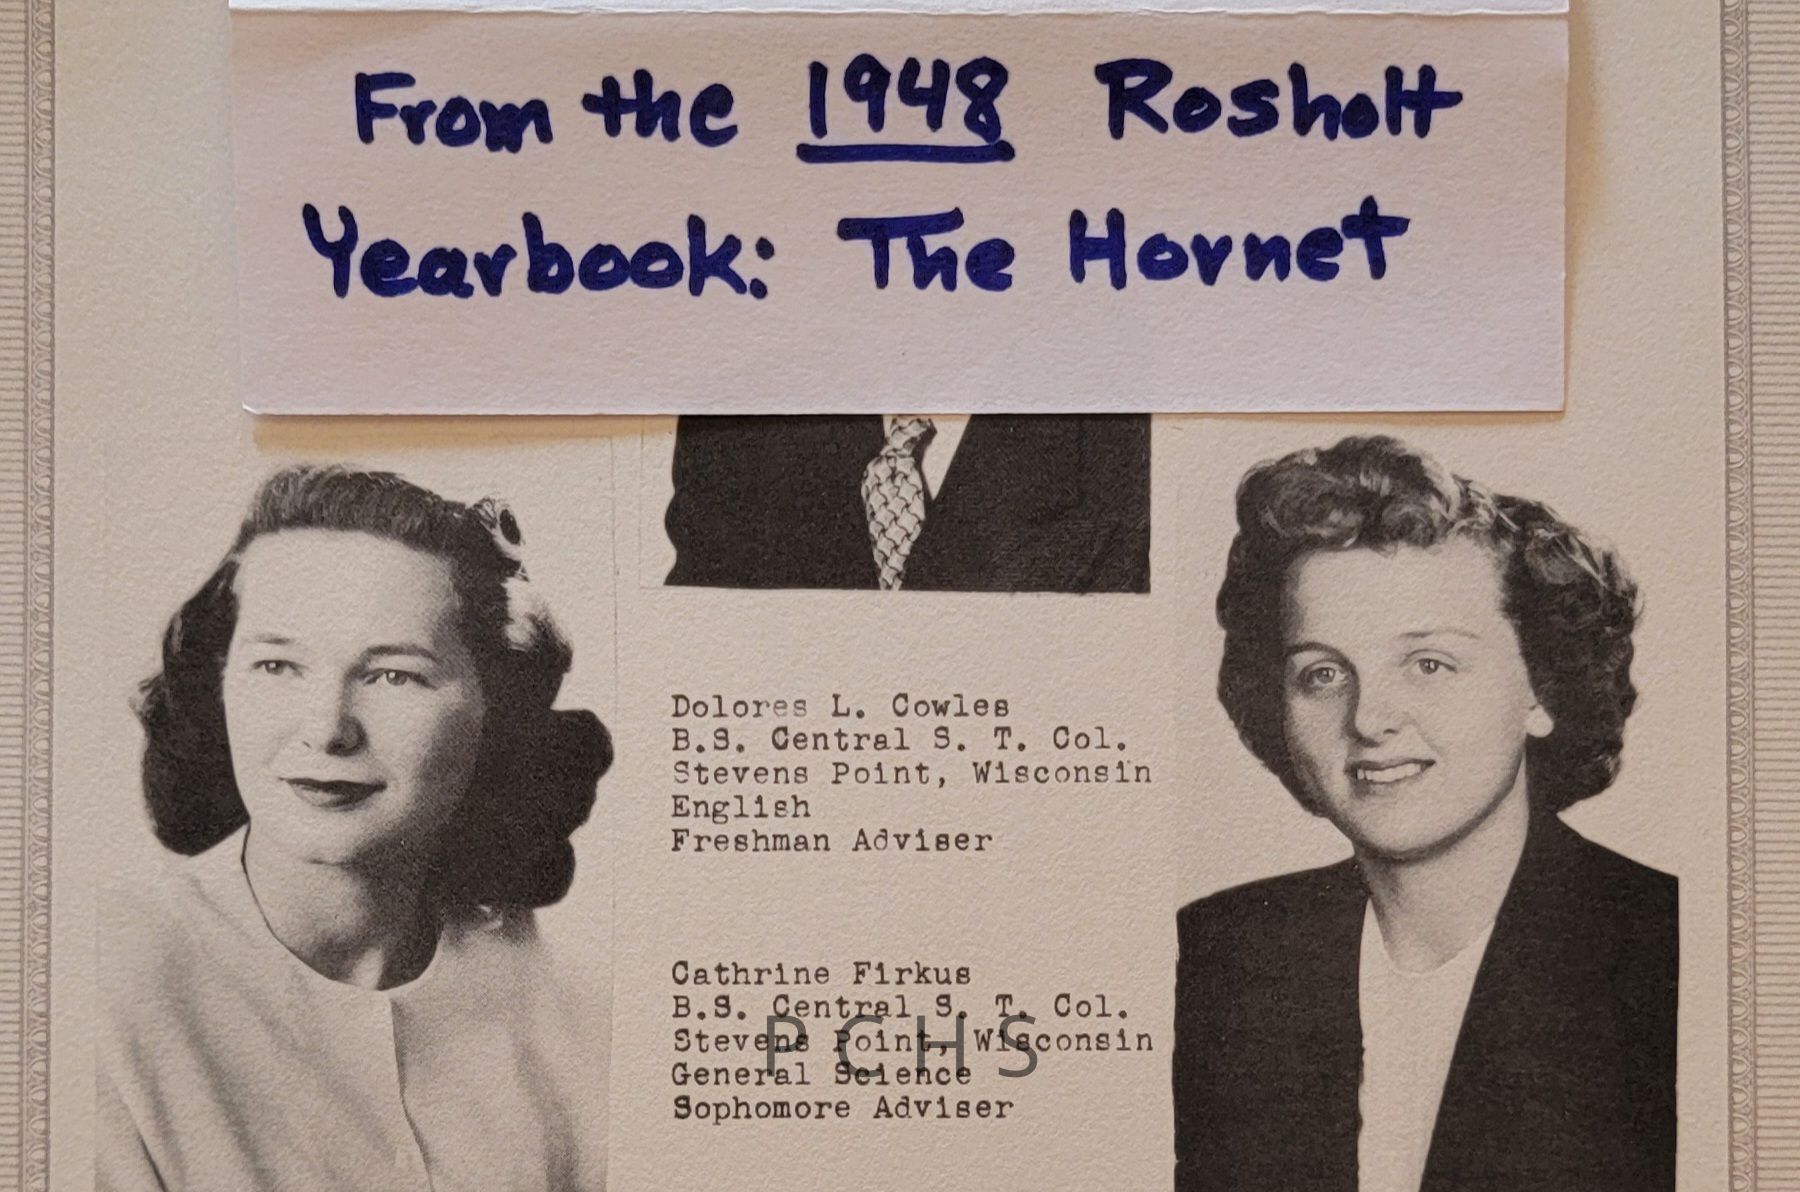 From the 1948 Rosholt
Yearbook: The Hornet
Dolores L. Cowles
B.S. Central S. T. Col.
Stevens Point, Wisconsin
English
Freshman Adviser
Cathrine Firkus
B.S. Central S. T. Col.
Stevens Point, Wisconsin
General Science
Sophomore Adviser
PCHS